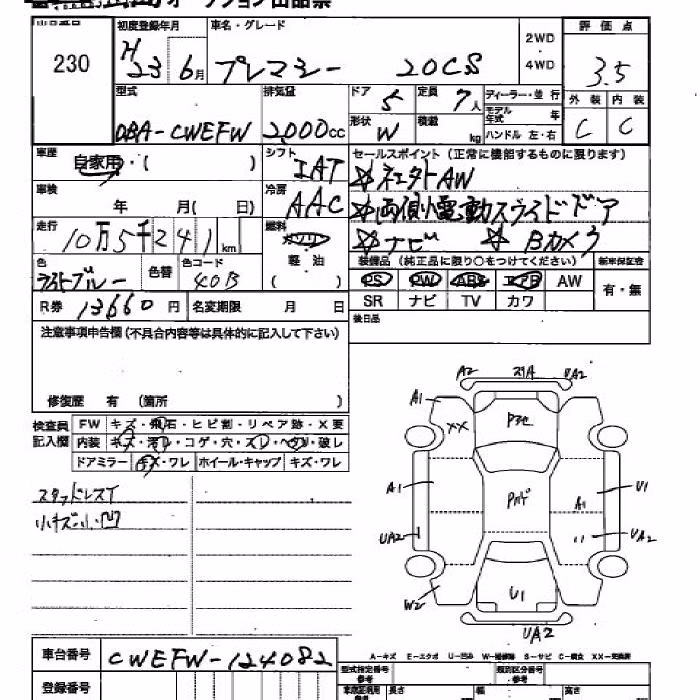 オークション出品票
出品番号 初度登録年月 車名・グレード 2WD・4WD 評価点
230 H23 6月 プレマシー 20CS 3.5
型式 排気量 ドア 5 定員 7人 ディーラー・並行 外装 内装
DBA-CWEFW 2,000cc 形状 W 積載 kg モデル年式 年 ハンドル 左・右 C C
車歴 自家用・( ) シフト IAT セールスポイント (正常に機能するものに限ります)
☆社外AW
車検 年 月( 日) 冷房 AAC ☆両側電動スライドドア
走行 10万5千241km 燃料 ガソリン ☆ナビ ☆Bカメラ
色 色替 色コード 軽油 装備品 (純正品に限り○をつけてください) 新車保証書
ブルー 40B ( ) PS PW ABS エアB AW 有・無
R券 13660円 名変期限 月 日 SR ナビ TV カワ
注意事項申告欄 (不具合内容等は具体的に記入して下さい) 後日品
修復歴 有 (箇所 )
検査員記入欄 FW キズ・飛石・ヒビ割・リペア跡・X要
内装 キズ・汚レ・コゲ・穴・スレ・ヘタリ・破レ
ドアミラー キズ・ワレ ホイール・キャップ キズ・ワレ
スタッドレスT
小キズ小凹
A2 スリA UA2
A1 XX Pマセ
A1 Pルーフ A1 U1
UA2 UA2
W2 U1
UA2
A-キズ E-エクボ U-凹ミ W-補修跡 S-サビ C-腐食 XX-交換済
車台番号 CWEFW-124082 型式指定番号 参考 類別区分番号 参考
登録番号 長さ 幅 高さ